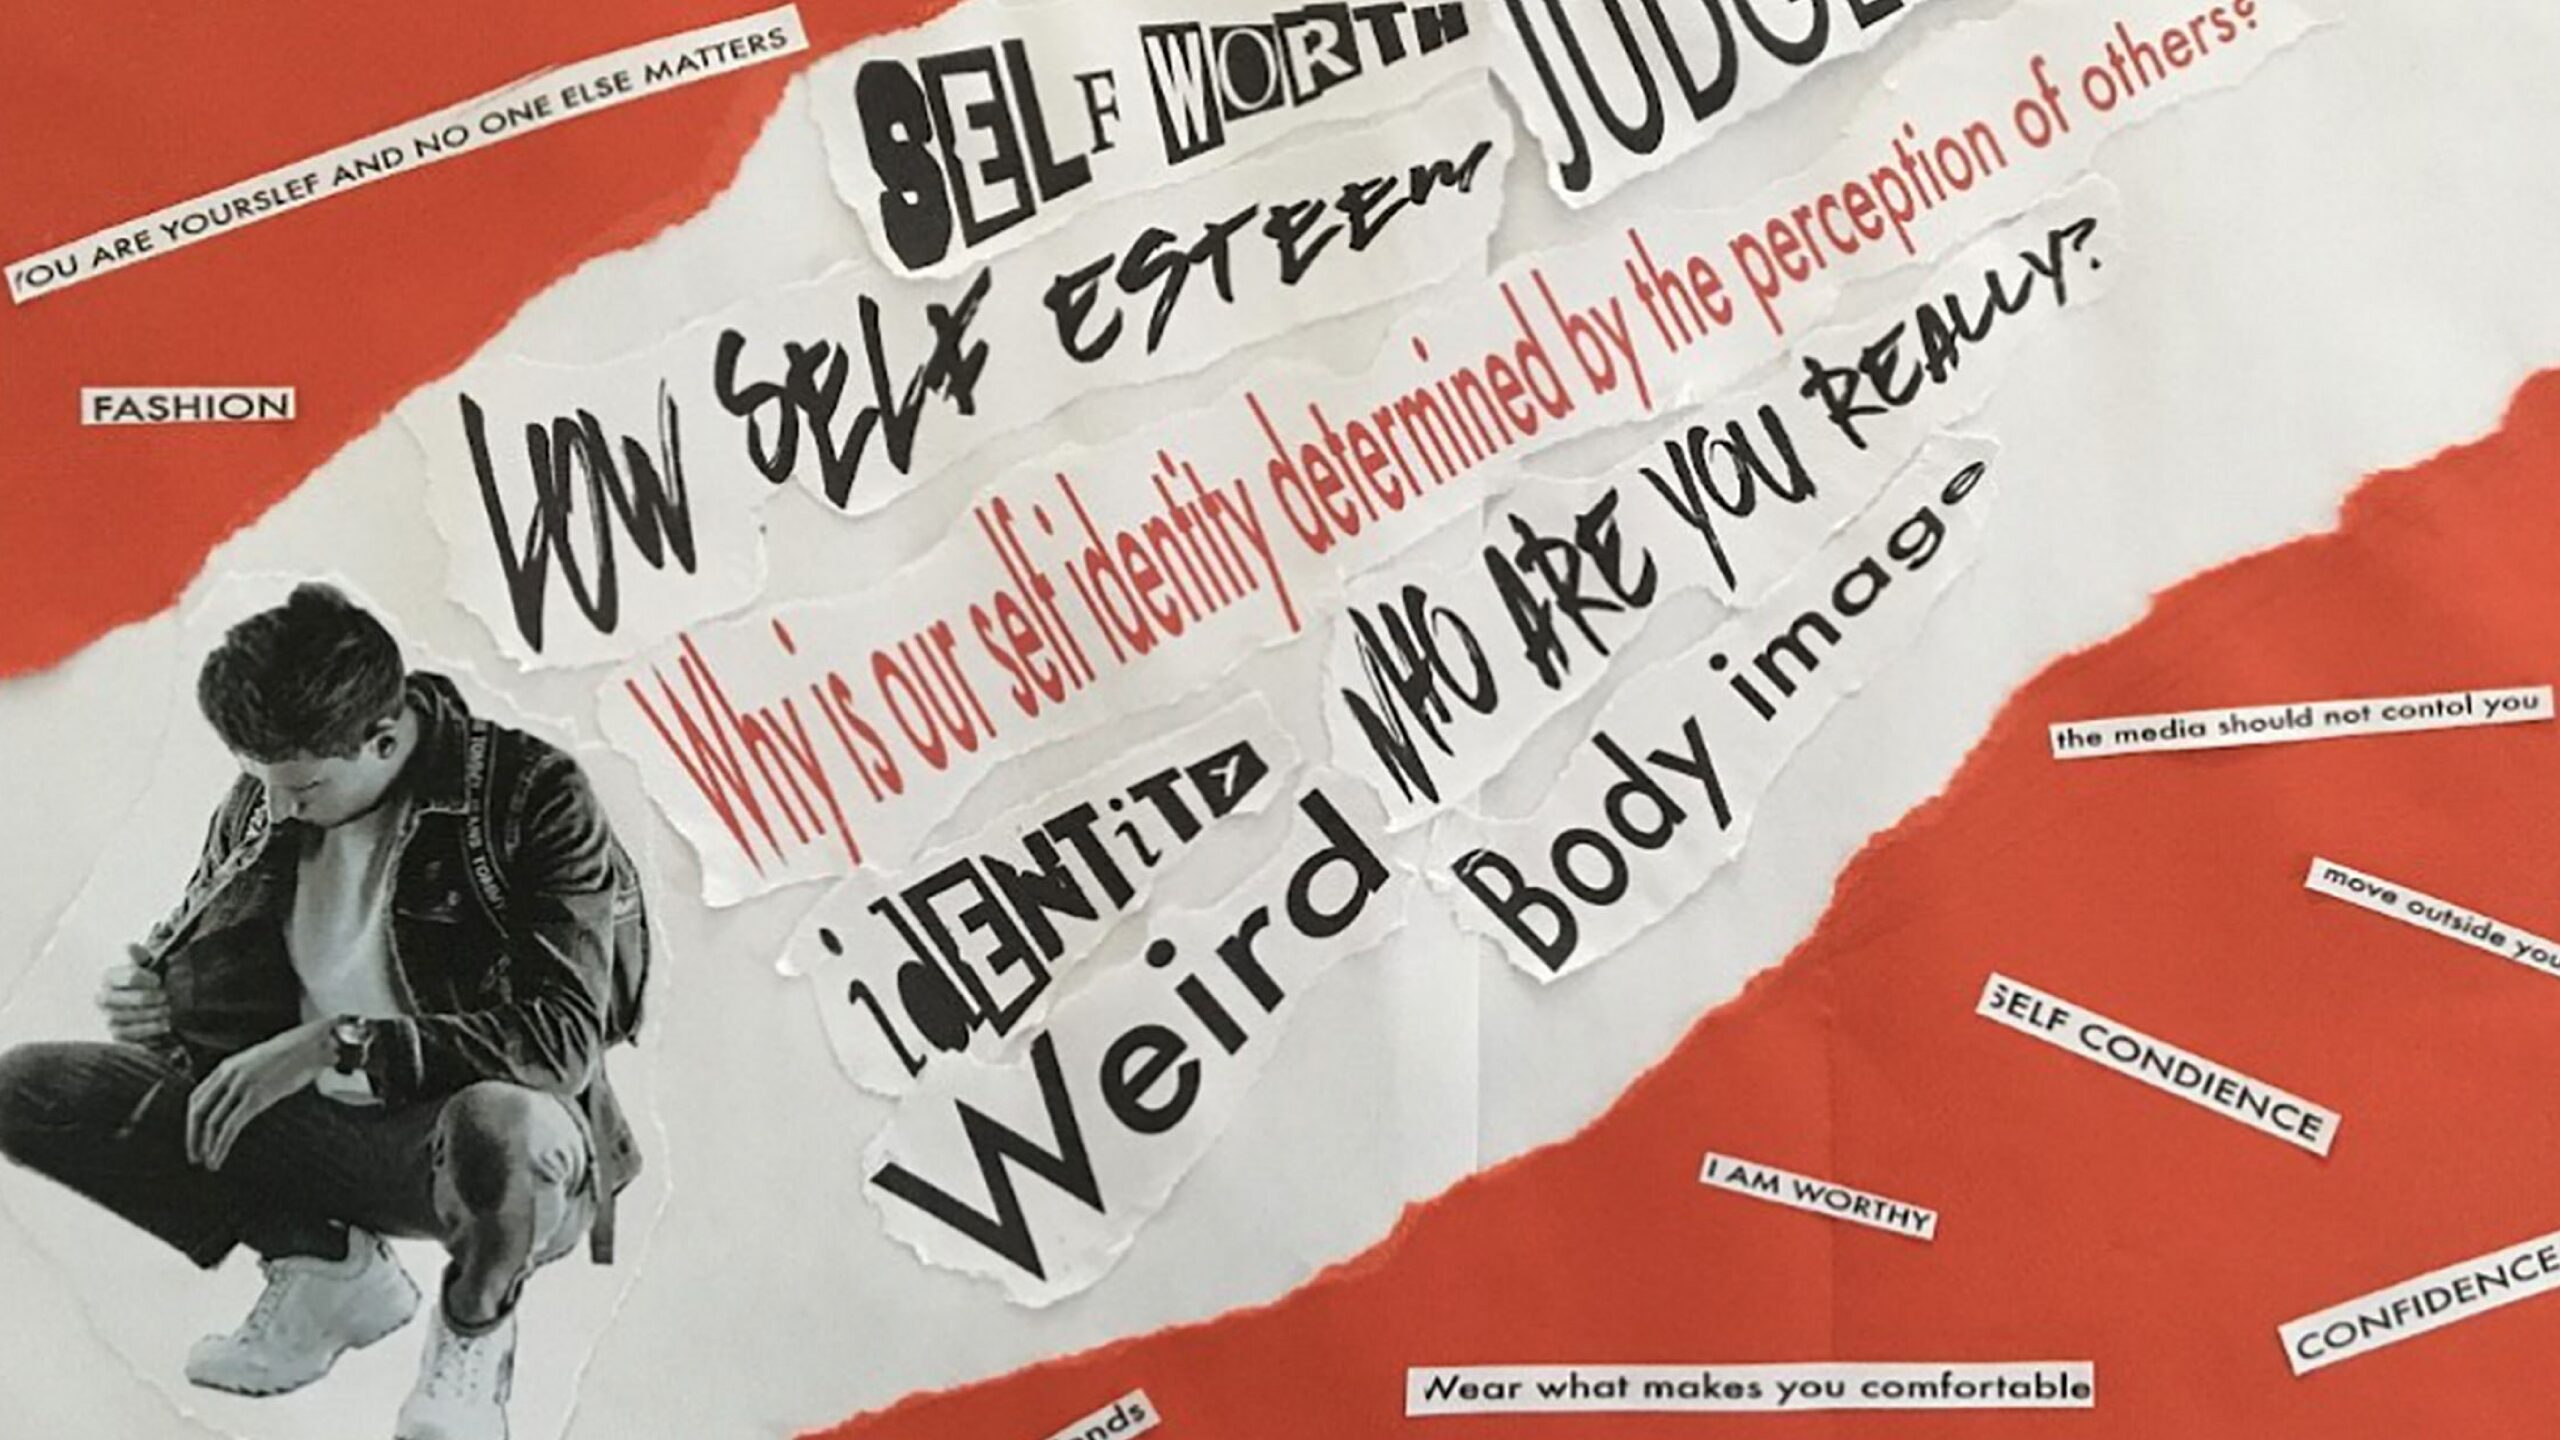 YOU ARE YOURSLEF AND NO ONE ELSE MATTERS
FASHION
SELF WORTH
LOW SELF ESTEEM
Why is our self identity determined by the perception of others?
WHO ARE YOU REALLY?
iDENTiTY
Body image
Weird
the media should not contol you
move outside you
SELF CONDIENCE
I AM WORTHY
CONFIDENCE
Wear what makes you comfortable